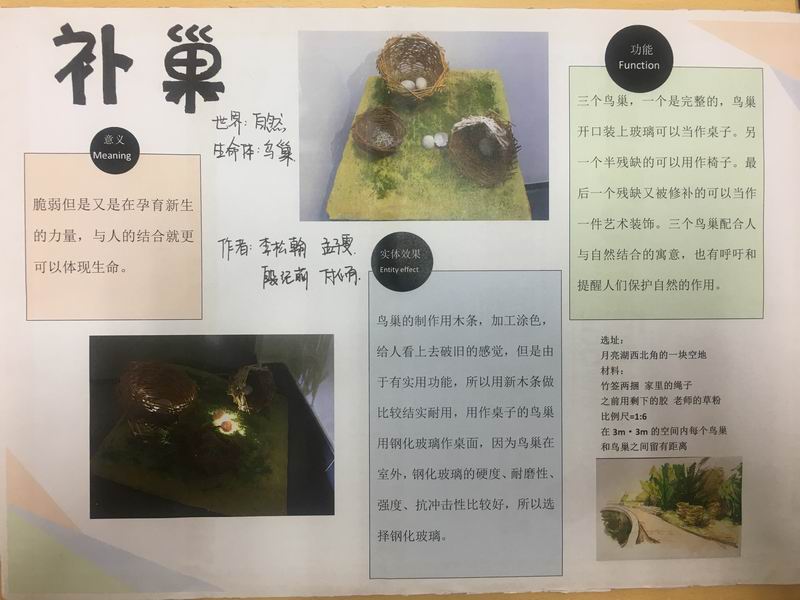 补巢
世界：自然
生命体：鸟巢
意义
Meaning
脆弱但是又是在孕育新生
的力量，与人的结合就更
可以体现生命。
作者：李松翰
实体效果
Entity effect
鸟巢的制作用木条，加工涂色，
给人看上去破旧的感觉，但是由
于有实用功能，所以用新木条做
比较结实耐用，用作桌子的鸟巢
用钢化玻璃作桌面，因为鸟巢在
室外，钢化玻璃的硬度、耐磨性、
强度、抗冲击性比较好，所以选
择钢化玻璃。
功能
Function
三个鸟巢，一个是完整的，鸟巢
开口装上玻璃可以当作桌子。另
一个半残缺的可以用作椅子。最
后一个残缺又被修补的可以当作
一件艺术装饰。三个鸟巢配合人
与自然结合的寓意，也有呼吁和
提醒人们保护自然的作用。
选址：
月亮湖西北角的一块空地
材料：
竹签两捆 家里的绳子
之前用剩下的胶 老师的草粉
比例尺=1:6
在 3m * 3m 的空间内每个鸟巢
和鸟巢之间留有距离